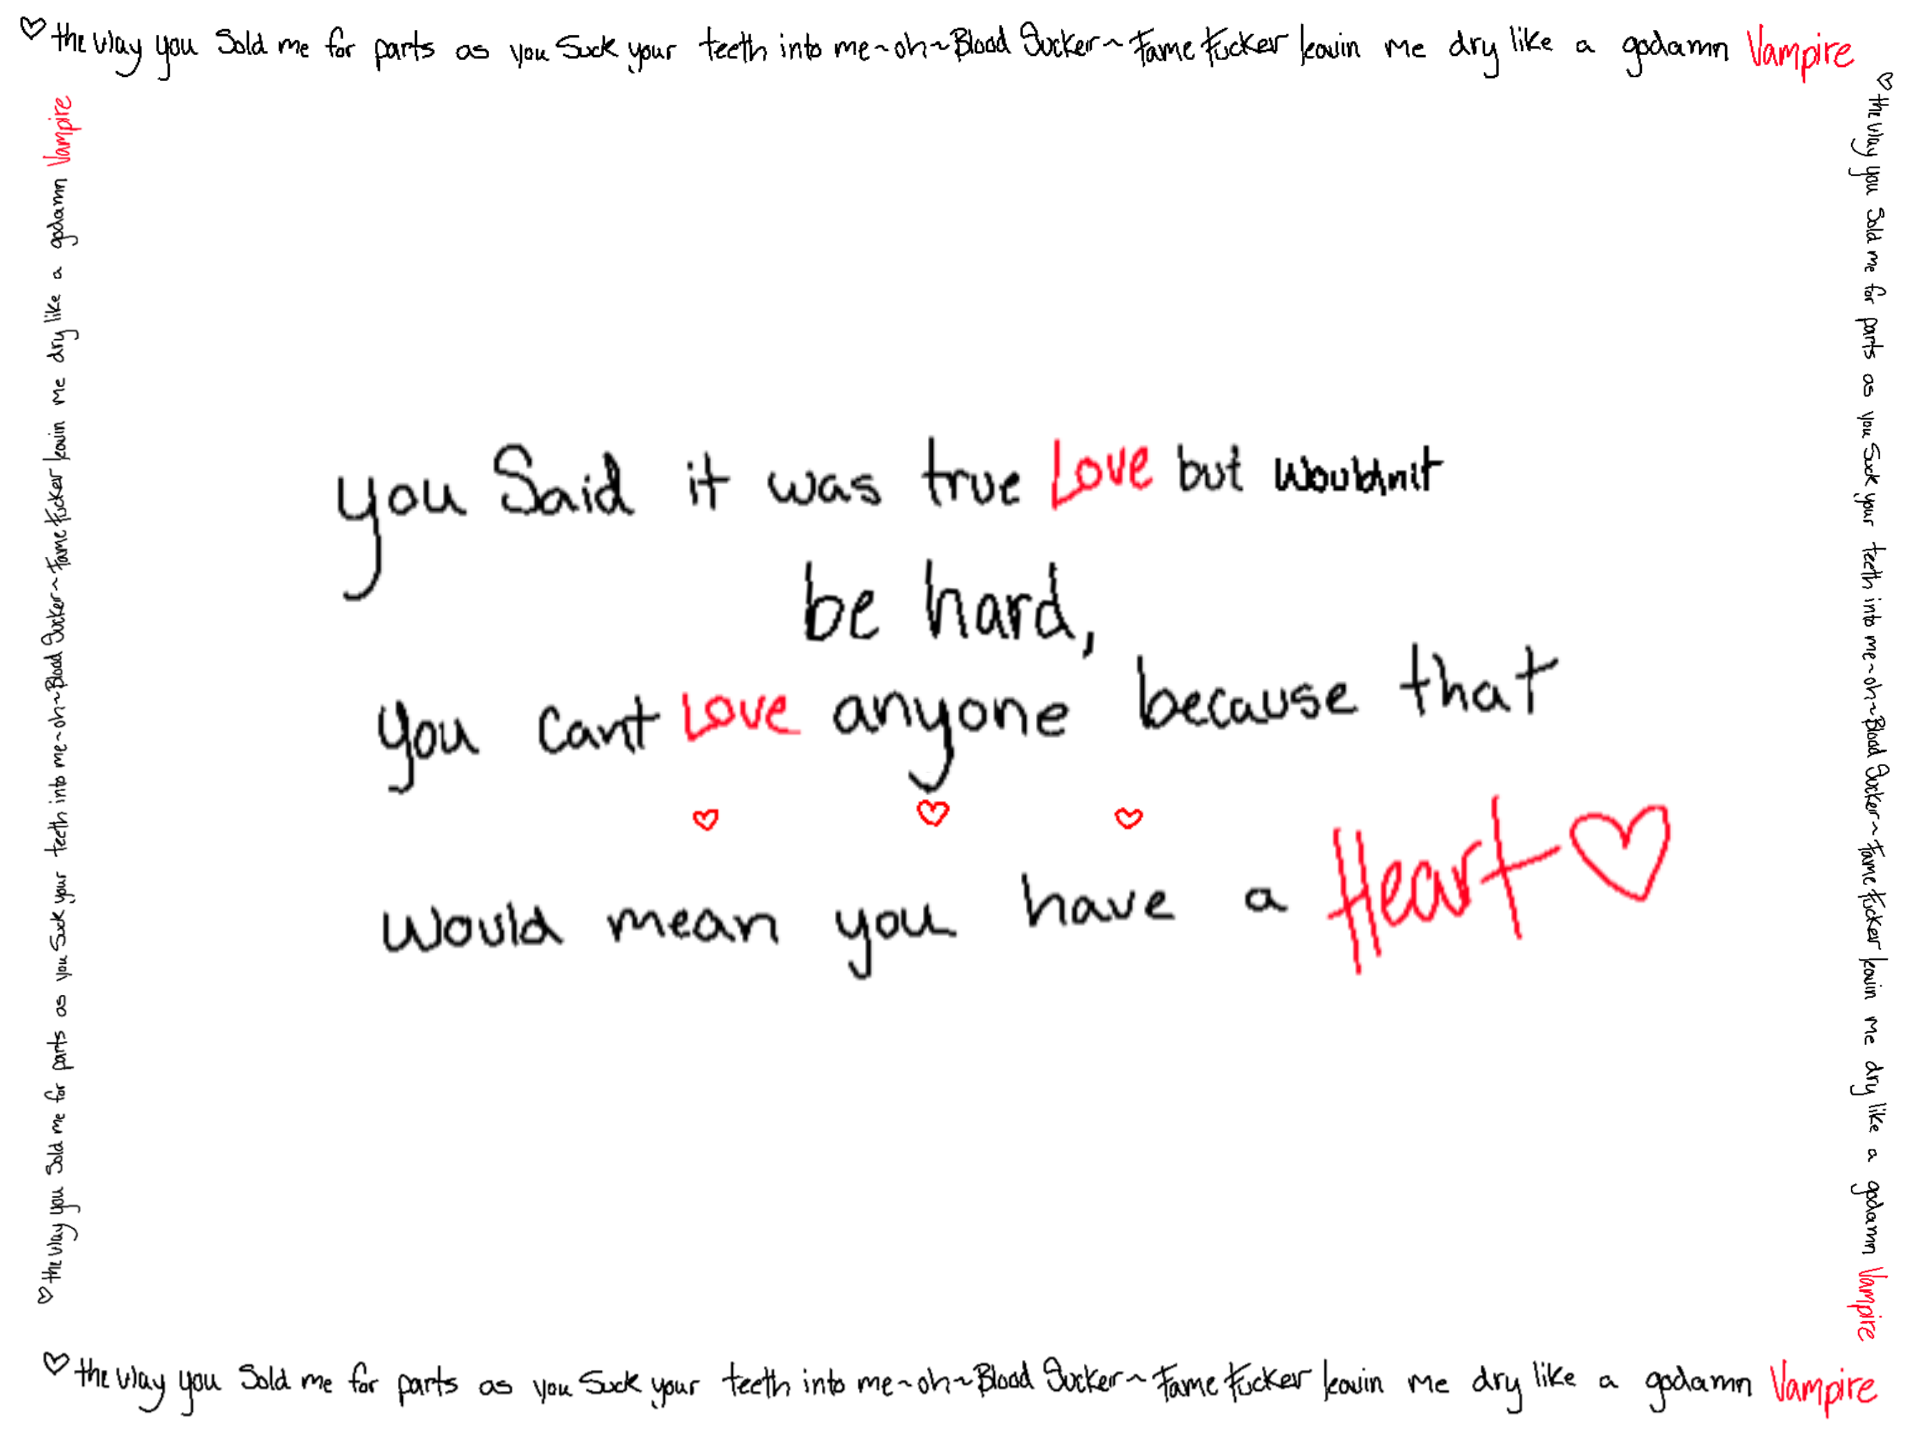 ♡ the way you Sold me for parts as you Suck your teeth into me~oh~Blood Sucker~Fame Fucker leavin me dry like a godamn Vampire
♡ the way you Sold me for parts as you Suck your teeth into me~oh~Blood Sucker~Fame Fucker leavin me dry like a godamn Vampire
you Said it was true Love but wouldnit
be hard,
you cant Love anyone because that
would mean you have a Heart ♡
♡ the way you Sold me for parts as you Suck your teeth into me~oh~Blood Sucker~Fame Fucker leavin me dry like a godamn Vampire
♡ the way you Sold me for parts as you Suck your teeth into me~oh~Blood Sucker~Fame Fucker leavin me dry like a godamn Vampire